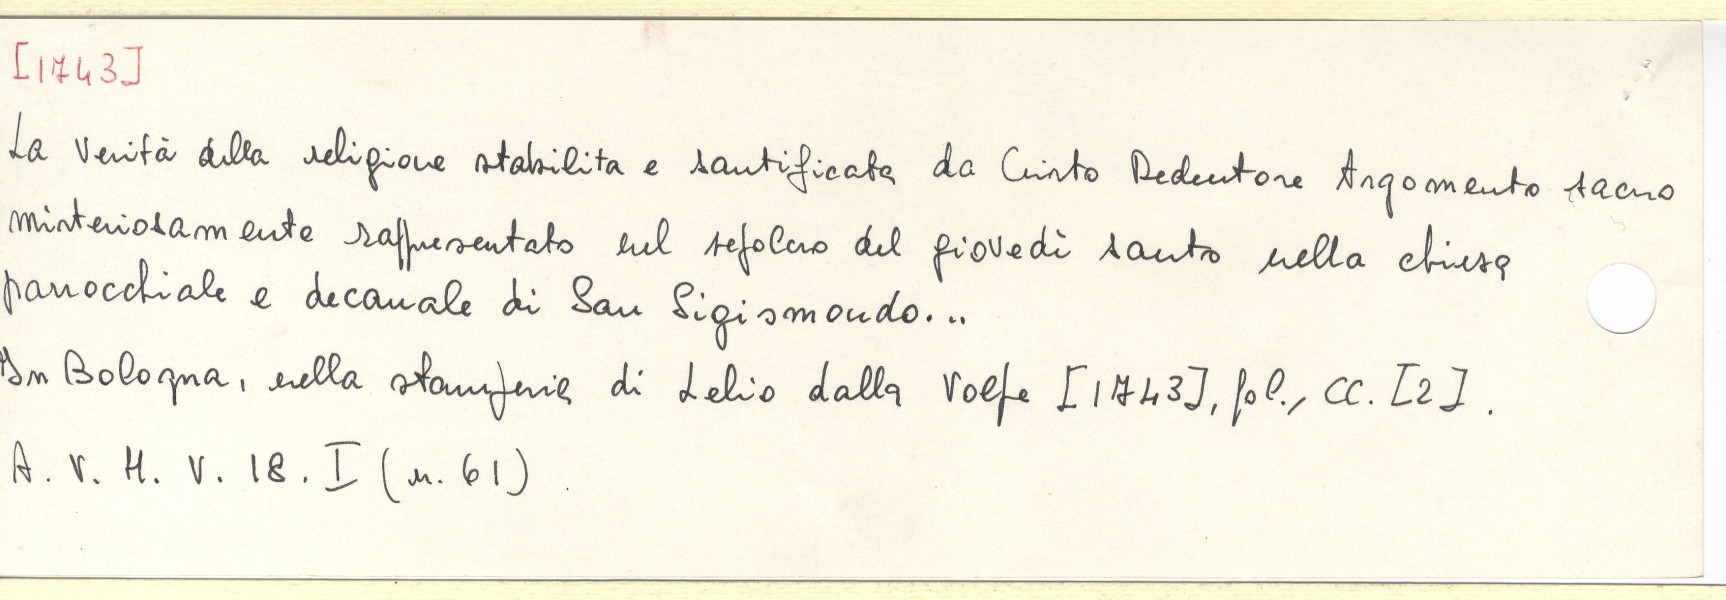 [1743]
La Verità della religione stabilita e santificata da Cristo Redentore Argomento sacro
misteriosamente rappresentato nel sepolcro del giovedì santo nella chiesa
parrocchiale e decanale di San Sigismondo...
In Bologna, nella stamperia di Lelio dalla Volpe [1743], fol., cc. [2].
A. V. H. V. 18. I (n. 61)